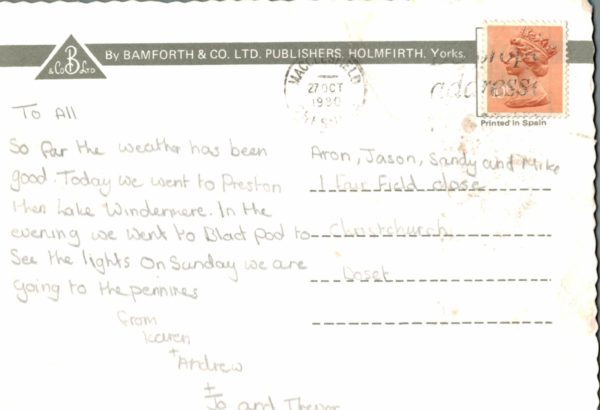 B
& Co LTD
By BAMFORTH & CO. LTD. PUBLISHERS. HOLMFIRTH, Yorks.
MACCLESFIELD
27 OCT
1980
address
Printed in Spain
To All
So far the weather has been
good. Today we went to Preston
then Lake Windermere. In the
evening we went to Black pool to
See the lights. On Sunday we are
going to the pennines
from
karen
+
Andrew
+
Jo and Trevor
Aron, Jason, Sandy and Mike
1 Fair Field close
Christchurch
Doset